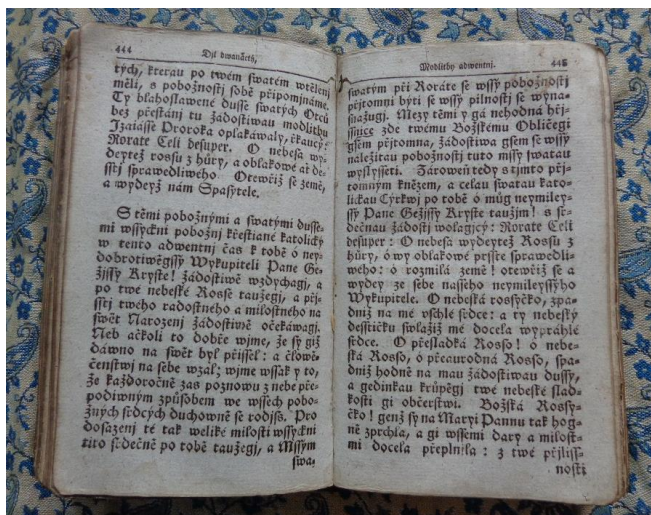 444
Djl dwanáctý,
tých, kterau po twém swatém wtělenj
měli, s pobožnostj sobě připomjnáme.
Ty blahoslawené dusse swatých Otců
bez přestánj tu žádostiwau modlitbu
Izaiásse Proroka opłakáwaly, řkaucý:
Rorate Celi desuper. O nebesa wy-
deytež rossu z hůry, a oblakowé ať de-
sstj sprawedliwého. Otewřiž se země,
a wydeyž nám Spasytele.
S těmi pobožnými a swatými dusse-
mi wssyckni pobožnj křestiané katolický
w tento adwentnj čas k tobě ó ney-
dobrotiwěgssý Wykupiteli Pane Ge-
žjssy Kryste! žádostiwě wzdychagj, a
po twé nebeské Rosse taužegj, a přj-
sstj twého radostného a milostného na
swět Narozenj žádostiwě očekáwagj.
Neb ačkoli to dobře wjme, že sy giž
dáwno na swět byl přissel: a člowě-
čenstwj na sebe wzal; wjme wssak y to,
že každoročně zas poznowu z nebe pře-
podiwným způsobem we wssech pobo-
žných srdcých duchowně se rodjss. Pro
dosaženj té tak weliké milosti wssyckni
tito srdečně po tobě taužegj, a Mssým
swa-
Modlitby adwentnj.
445
swatým při Roráte se wssý pobožnostj
přjtomni býti se wssý pilnostj se wyna-
snažugj. Mezy těmi y gá nehodná hřj-
ssnice zde twému Božskému Obličegi
gsem přjtomna, žádostiwa gsem se wssý
náležitau pobožnostj tuto mssy swatau
wyslysseti. Zároweň tedy s tjmto přj-
tomným knězem, a celau swatau kato-
lickau Cýrkwj po tobě ó můg neymiley-
ssý Pane Gežjssy Kryste taužjm! s sr-
dečnau žádostj wolagjcý: Rorate Celi
desuper: O nebesa wydeytež Rossu z
hůry, ó wy oblakowé prsste sprawedli-
weho: ó rozmilá země! otewřiž se a
wydey ze sebe nasseho neymileyssýho
Wykupitele. O nebeská rosyčko, zpa-
dniž na mé vschlé srdce: a ty nebeský
desstičku swlažiž mé docela wyprahlé
srdce. O přesladká Rosso! ó nebe-
ská Rosso, ó přeaurodná Rosso, spa-
dniž hodně na mau žádostiwau dussy,
a gedinkau krůpěgj twé nebeské slad-
kosti gi občerstwi. Božská Rosy-
čko! genž sy na Maryi Pannu tak hog-
ně zprchla, a gi wssemi dary a milost-
mi docela přeplnila: z twé přjliss-
nosti